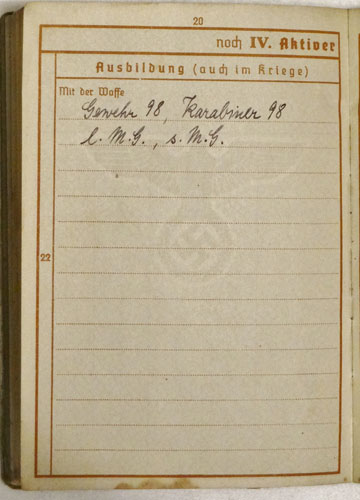 20
noch IV. Aktiver
Ausbildung (auch im Kriege)
Mit der Waffe
Gewehr 98, Karabiner 98
l. M.G., s. M.G.
22